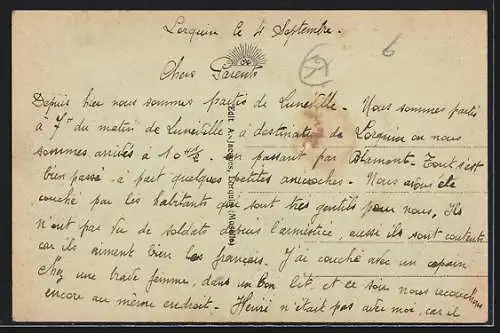 Lorquin le 4 Septembre.
Chers Parents
Depuis hier nous sommes partis de Lunéville. Nous sommes partis
à 7h du matin de Lunéville à destination de Lorquin ou nous
sommes arrivés à 10h 1/2. en passant par Blâmont. Tout s'est
bien passé à part quelques petites anicroches. Nous avons été
couché par les habitants qui sont très gentils pour nous, Ils
n'ont pas vu de soldats depuis l'armistice, aussi ils sont contents
car ils aiment bien les français. J'ai couché avec un copain
chez une brave femme, dans un bon lit, et ce soir nous recouchons
encore au même endroit. Henri n'était pas avec moi, car il
Edit. A. Jacques, Lorquin (Moselle)
6